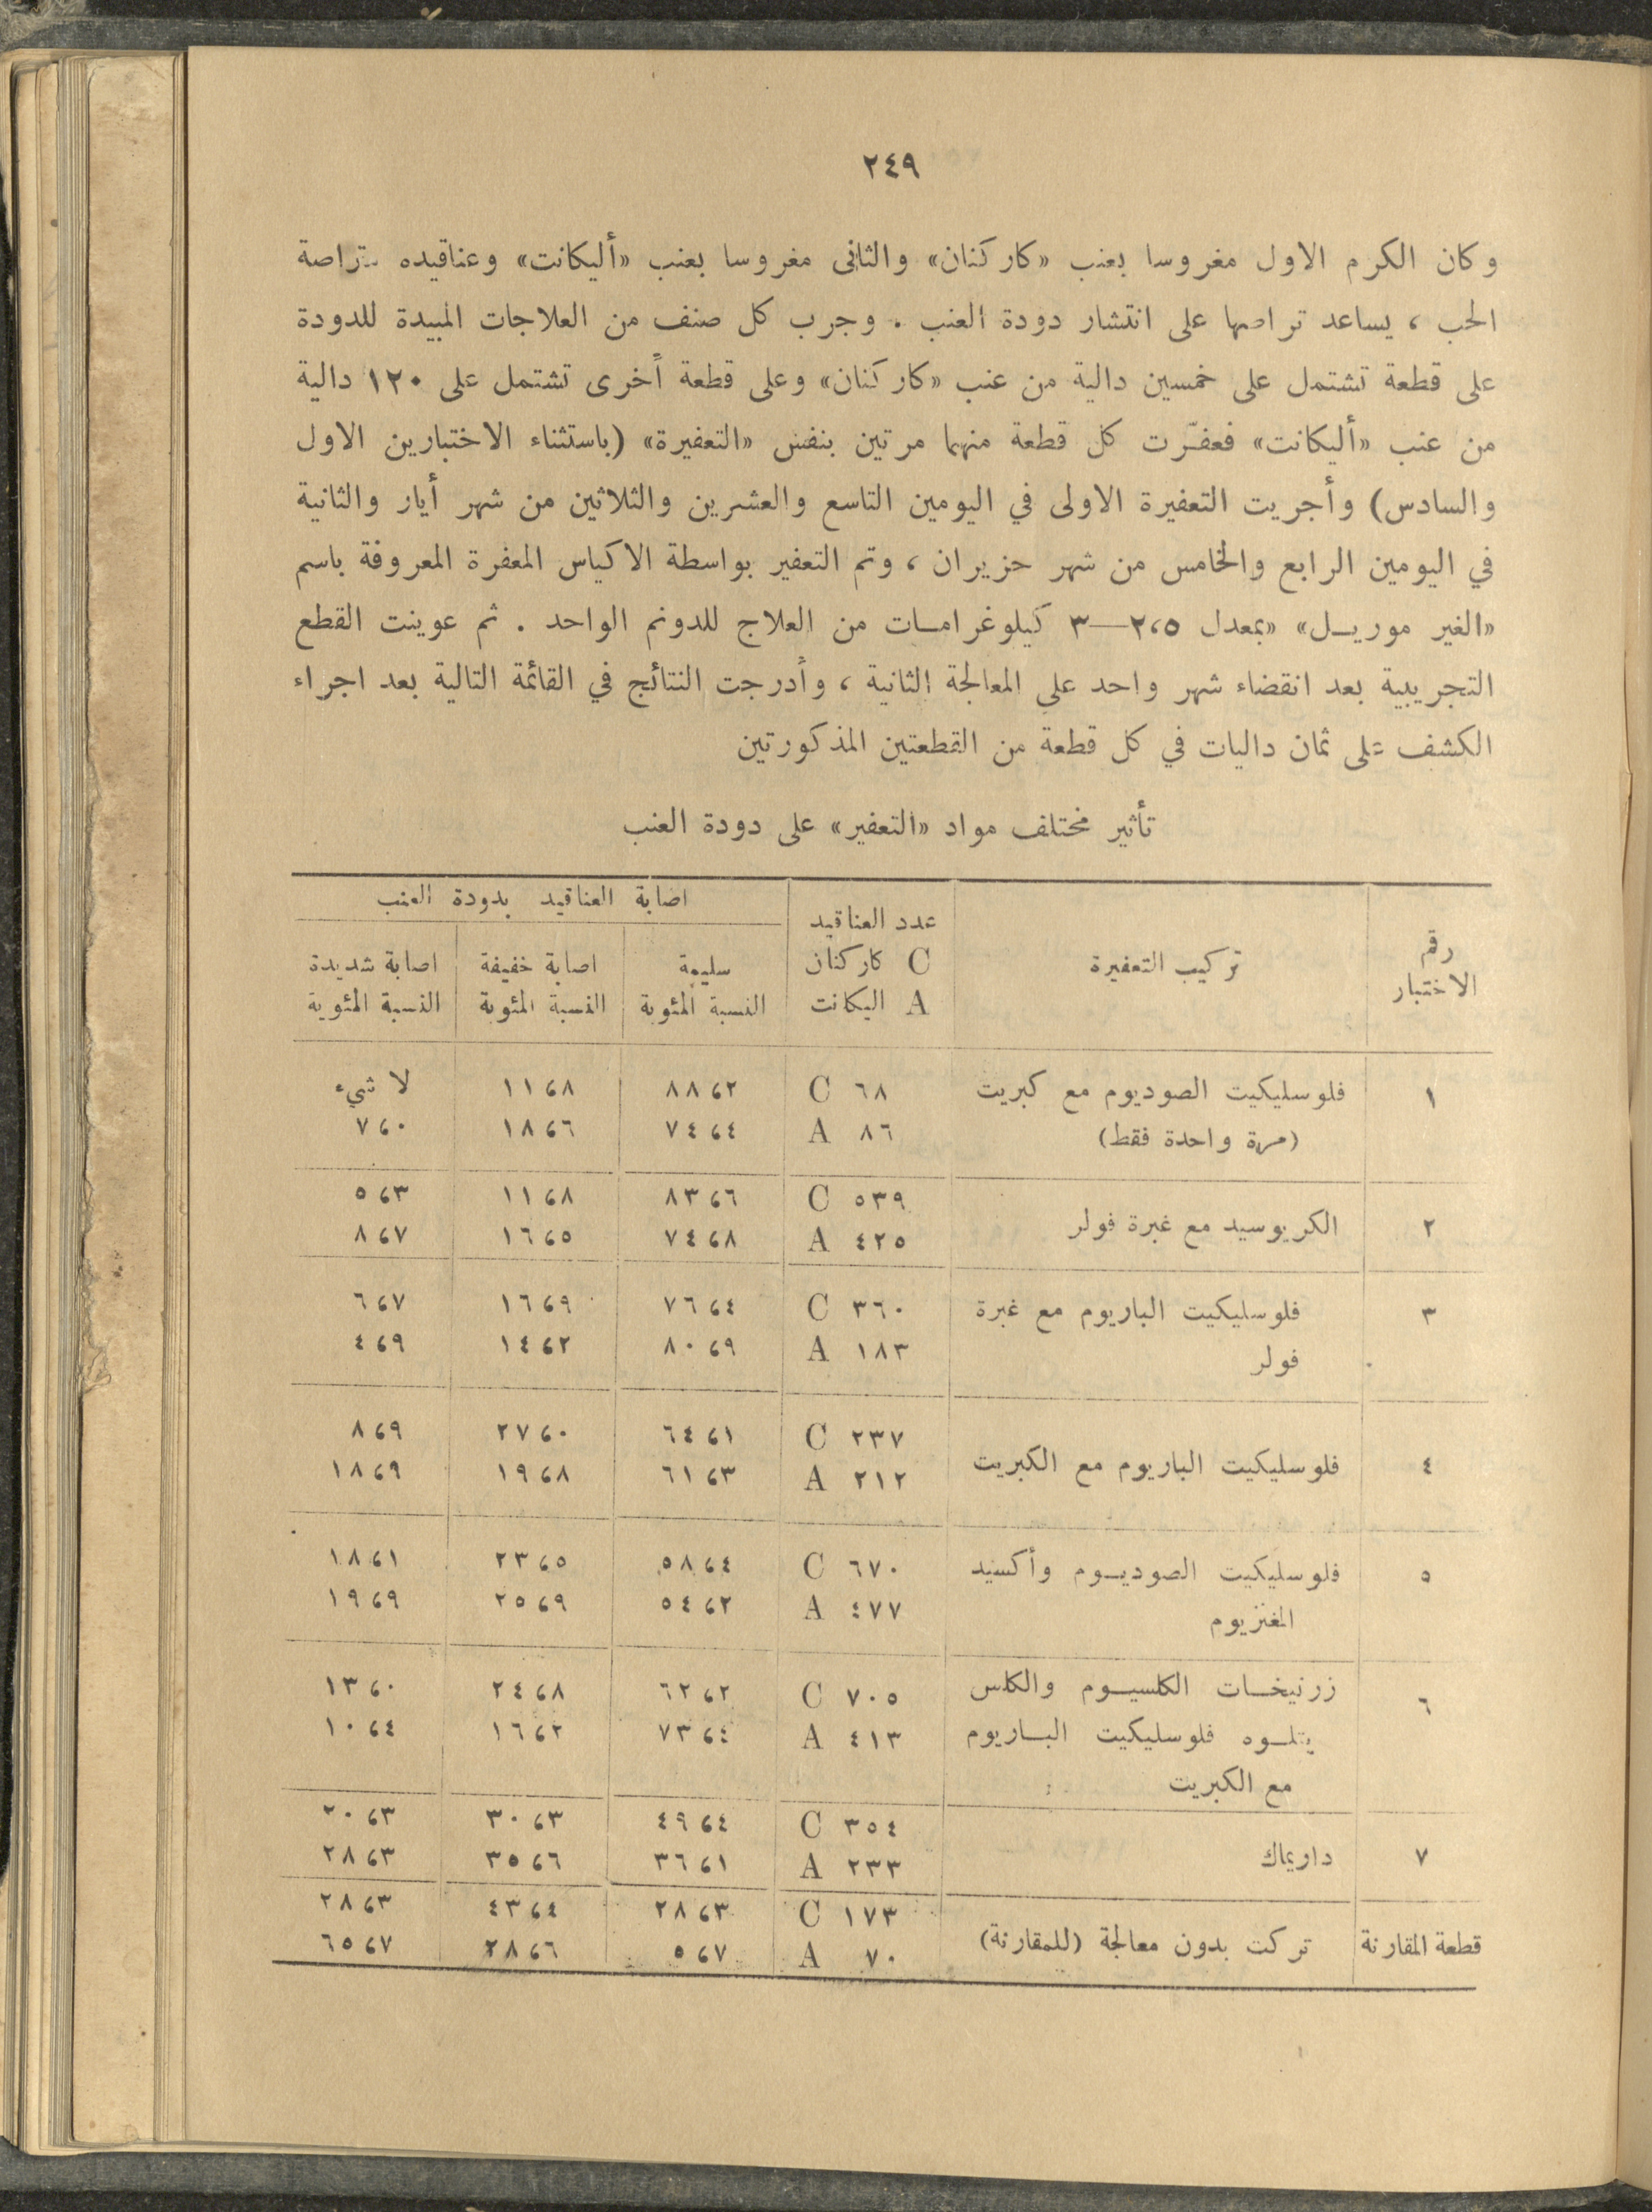 ٢٤٩
وكان الكرم الاول مغروسا بعنب «كاركنان» والثانى مغروسا بعنب «أليكانت» وعناقيده متراصة
الحب ، يساعد تراصها على انتشار دودة العنب . وجرب كل صنف من العلاجات المبيدة للدودة
على قطعة تشتمل على خمسين دالية من عنب «كاركنان» وعلى قطعة أخرى تشتمل على ١٢٠ دالية
من عنب «أليكانت» فعفّرت كل قطعة منهما مرتين بنفس «التعفيرة» (باستثناء الاختبارين الاول
والسادس) وأجريت التعفيرة الاولى في اليومين التاسع والعشرين والثلاثين من شهر أيار والثانية
في اليومين الرابع والخامس من شهر حزيران ، وتم التعفير بواسطة الاكياس المعفرة المعروفة باسم
«الغير موريل» «بمعدل ٢،٥—٣ كيلوغرامات من العلاج للدونم الواحد . ثم عوينت القطع
التجريبية بعد انقضاء شهر واحد على المعالجة الثانية ، وأدرجت النتائج في القائمة التالية بعد اجراء
الكشف على ثمان داليات في كل قطعة من القطعتين المذكورتين
تأثير مختلف مواد «التعفير» على دودة العنب
رقم الاختبار | تركيب التعفيرة | عدد العناقيد C كاركنان A اليكانت | اصابة العناقيد بدودة العنب
سليمة النسبة المئوية | اصابة خفيفة النسبة المئوية | اصابة شديدة النسبة المئوية
١ | فلوسليكيت الصوديوم مع كبريت | C ٦٨ | ٨٨،٢ | ١١،٨ | لا شيء
(مرة واحدة فقط) | A ٨٦ | ٧٤،٤ | ١٨،٦ | ٧،٠
٢ | الكريوسيد مع غبرة فولر | C ٥٣٩ | ٨٣،٦ | ١١،٨ | ٥،٣
A ٤٢٥ | ٧٤،٨ | ١٦،٥ | ٨،٧
٣ | فلوسليكيت الباريوم مع غبرة | C ٣٦٠ | ٧٦،٤ | ١٦،٩ | ٦،٧
فولر | A ١٨٣ | ٨٠،٩ | ١٤،٢ | ٤،٩
٤ | فلوسليكيت الباريوم مع الكبريت | C ٢٣٧ | ٦٤،١ | ٢٧،٠ | ٨،٩
A ٢١٢ | ٦١،٣ | ١٩،٨ | ١٨،٩
٥ | فلوسليكيت الصوديوم وأكسيد | C ٦٧٠ | ٥٨،٤ | ٢٣،٥ | ١٨،١
المغنزيوم | A ٤٧٧ | ٥٤،٢ | ٢٥،٩ | ١٩،٩
٦ | زرنيخات الكلسيوم والكلس | C ٧٠٥ | ٦٢،٢ | ٢٤،٨ | ١٣،٠
يتلوه فلوسليكيت الباريوم | A ٤١٣ | ٧٣،٤ | ١٦،٢ | ١٠،٤
مع الكبريت
٧ | داريماك | C ٣٥٤ | ٤٩،٤ | ٣٠،٣ | ٢٠،٣
A ٢٣٣ | ٣٦،١ | ٣٥،٦ | ٢٨،٣
قطعة المقارنة | تركت بدون معالجة (للمقارنة) | C ١٧٣ | ٢٨،٣ | ٤٣،٤ | ٢٨،٣
A ٧٠ | ٥،٧ | ٢٨،٦ | ٦٥،٧